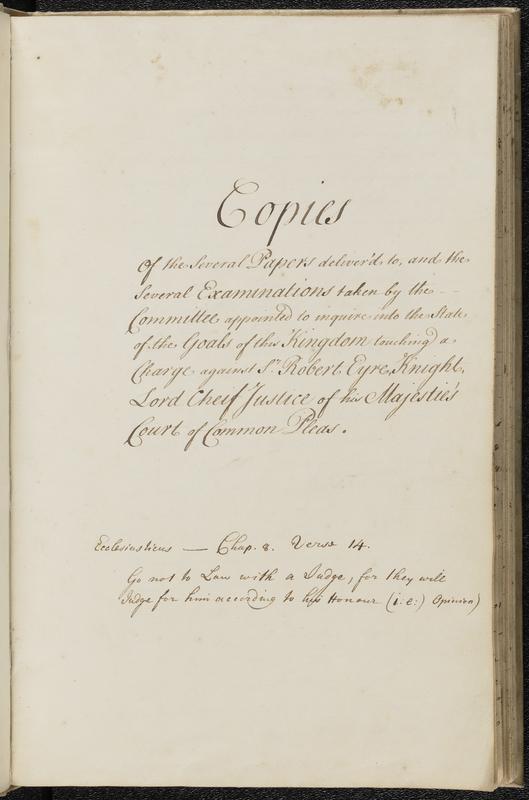 Copies
Of the Several Papers deliver'd to, and the
Several Examinations taken by the --
Committee appointed to inquire into the State
of the Goals of this Kingdom touching a
Charge against Sr. Robert Eyre, Knight,
Lord Cheif Justice of his Majestie's
Court of Common Pleas.
Ecclesiasticus — Chap. 8. Verse 14.
Go not to Law with a Judge, for they will
Judge for him according to his Honour (i:e:) Opinion)